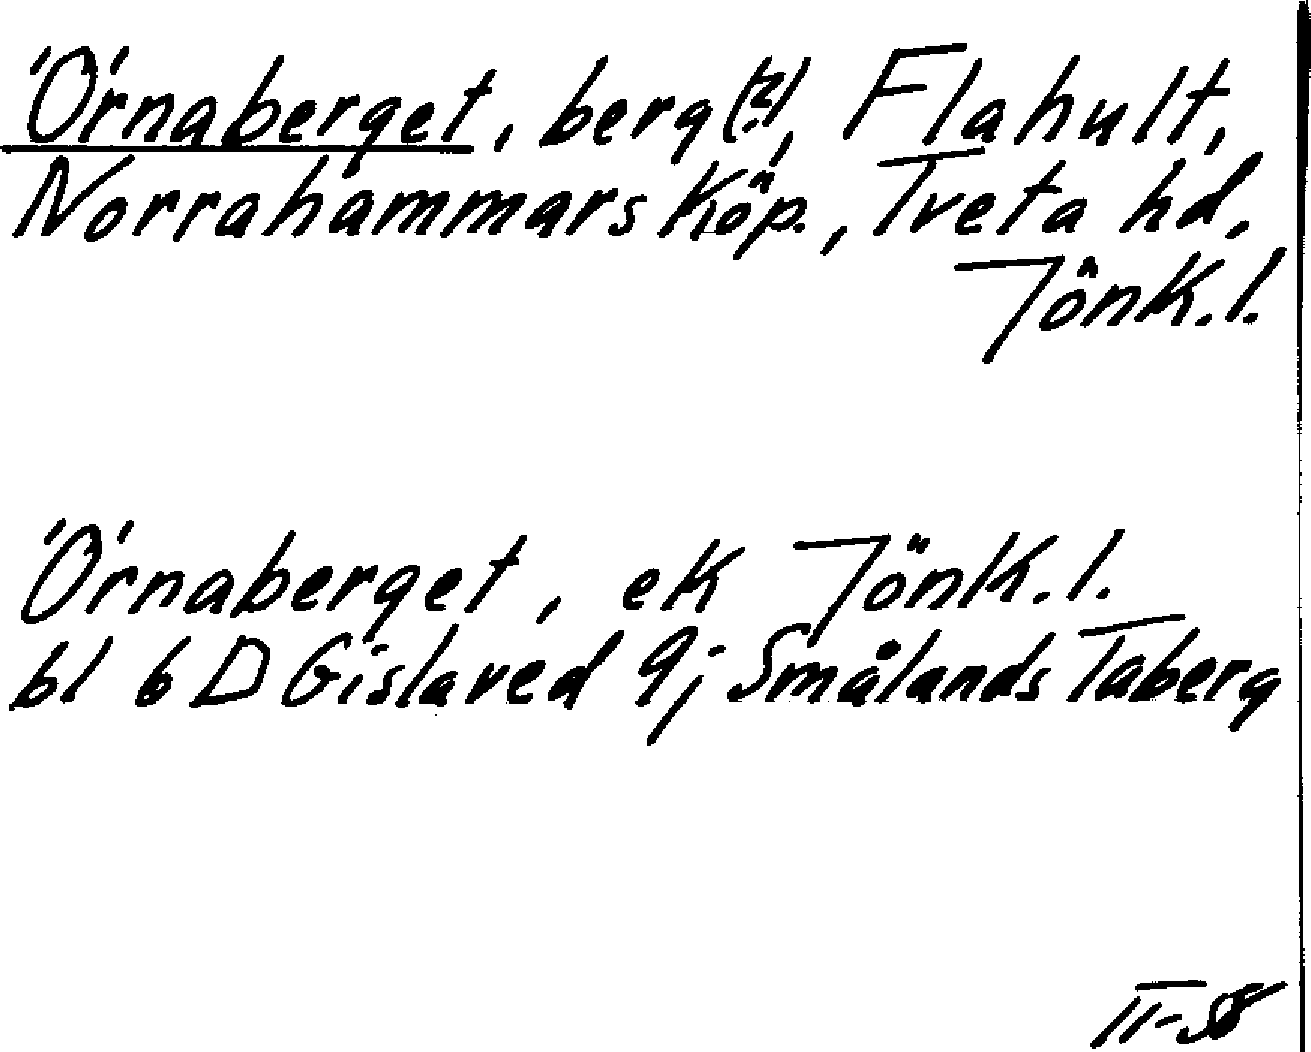 Örnaberget, berg(?), Flahult,
Norrahammars köp., Tveta hd.
Jönk.l.
Örnaberget, ek Jönk.l.
bl 6 D Gislaved 9j Smålands Taberg
II-58